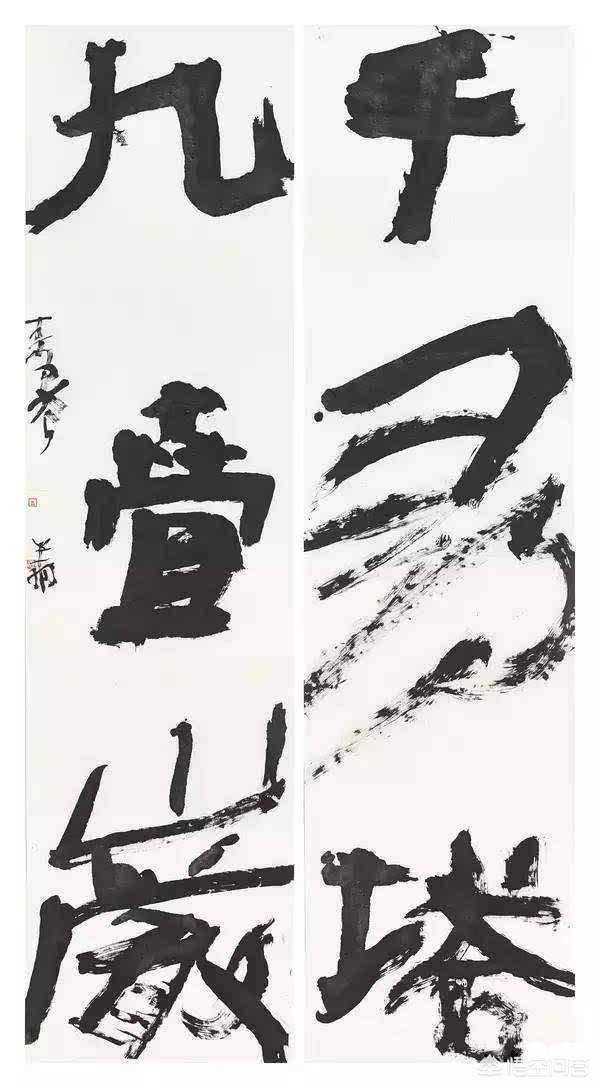 千尋塔
九疊巖
悟空问答